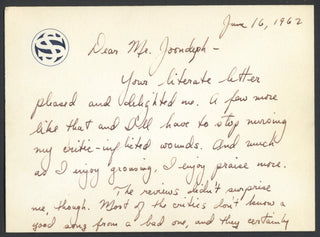 June 16, 1962
Dear Mr. Joondeph -
Your literate letter
pleased and delighted me. A few more
like that and I'll have to stop nursing
my critic-inflicted wounds. And much
as I enjoy grousing, I enjoy praise more.
The reviews didn't surprise
me, though. Most of the critics don't know a
good song from a bad one, and they certainly